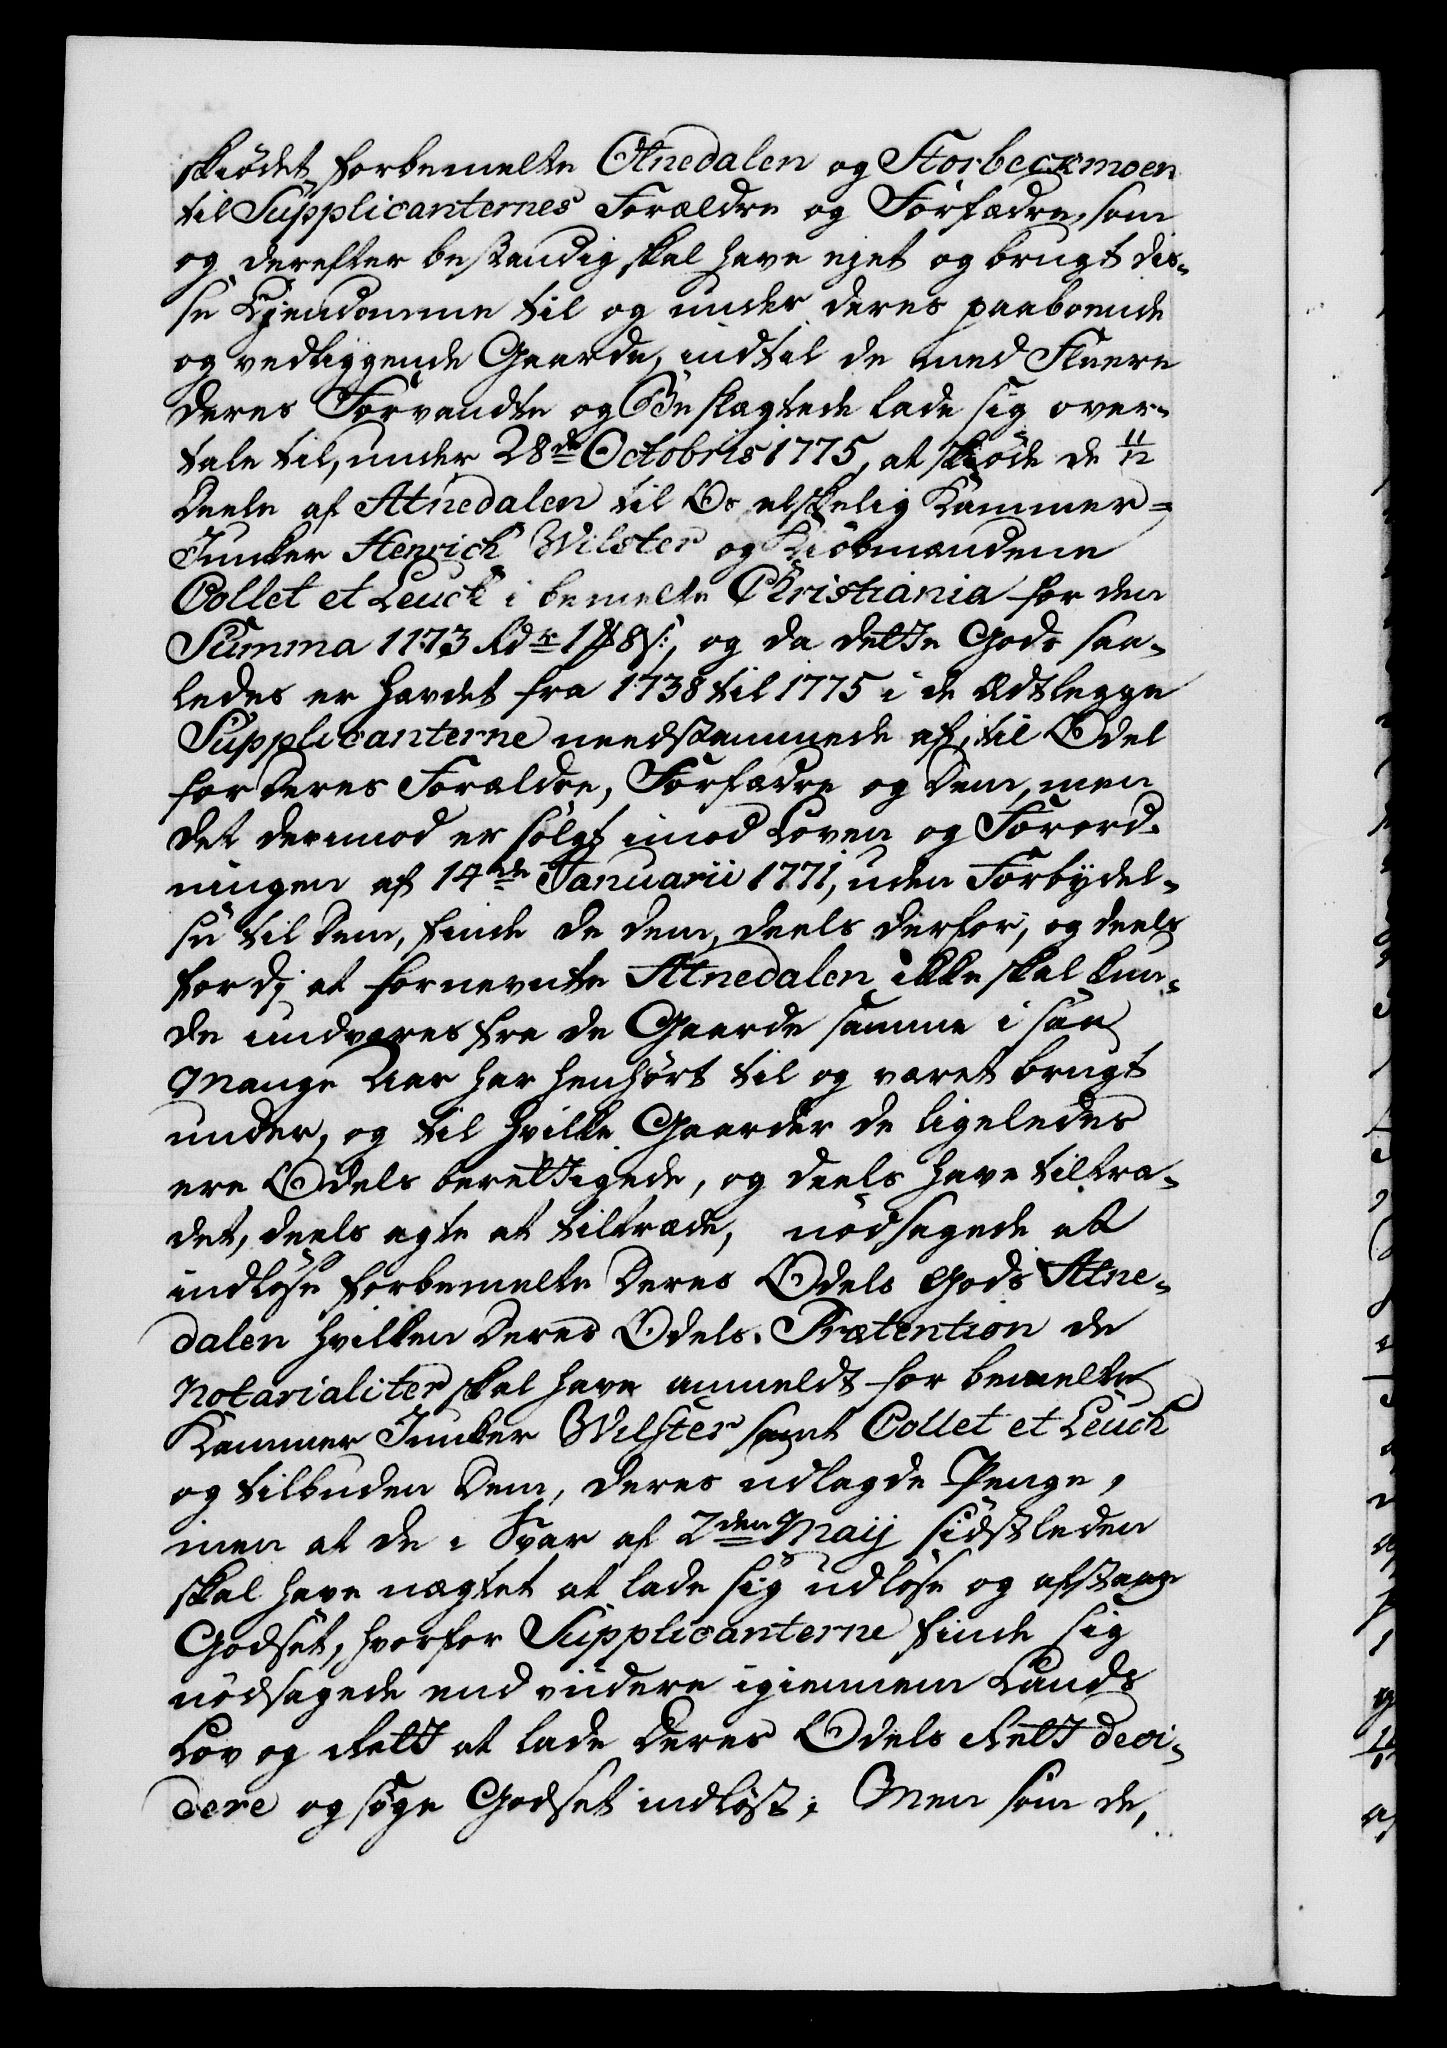 skiödet forbemelte Atnedalen og Storbeckmoen
til Supplicanternes Forældre og Forfædre, som
og derefter bestandig skal have ejet og brugt dis-
se Ejendomme til og under deres paaboende
og vedliggende Gaarde, indtil de med Fleere
deres Forvandte og Beslægtede lade sig over-
tale til, under 28de Octobris 1775, at skiöde de 11/12
Deele af Atnedalen til Os elskelig Kammer-
Junker Henrich Wilster og Kiöbmændene
Collet et Leuch i bemelte Christiania for den
Summa 1173 Rdr 1 ℔ 8 s:, og da dette Gods saa-
ledes er hævdet fra 1738 til 1775 i de Ædtlegge
Supplicanterne needstammede af, til Odel
for deres Forældre, Forfædre og dem, men
det derimod er solgt imod Loven og Forord-
ningen af 14de Januarii 1771, uden Forbydel-
se til dem, finde de dem, deels derfor, og deels
fordj at fornevnte Atnedalen ikke skal kun-
de undværes fra de Gaarde samme i saa
mange Aar har henhört til og været brugt
under, og til hvilke Gaarder de ligeledes
ere Odels berettigede, og deels have tiltræ-
det, deels agte at tiltræde, nödsagede at
indløse forbemelte deres Odels Gods Atne-
dalen hvilken deres Odels-Prætention de
notarialiter skal have anmeldt for bemelte
Kammer Junker Wilster samt Collet et Leuch
og tilbuden dem, deres udlagde Penge,
men at de i Svar af 2den Maij sidstleden
skal have nægtet at lade sig udløse og afstaae
Godset, hvorfor Supplicanterne finde sig
nödsagede end viidere igiennem Lands
Lov og Rett at lade deres Odels Rett deci-
dere og søge Godset indløst; Men som de,